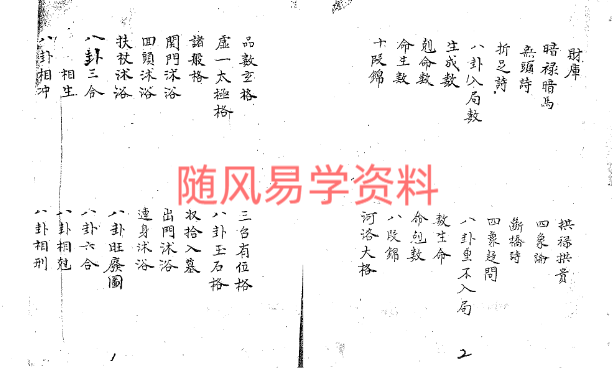 財庫
暗禄暗馬
無頭詩
折足詩
八卦入局数
生成数
剋命数
命生数
十段錦
拱禄拱貴
四象論
斷橋詩
四象疑問
八卦重不入局
数生命
命剋数
八段錦
河洛大格
2
品數玄格
虚一太極格
諸般格
門沐浴
四頭沐浴
扶杖沐浴
八卦三合
相生
八卦相冲
三台有位格
八卦玉石格
收拾入墓
出門沐浴
連身沐浴
八卦旺廢圖
八卦六合
八卦相剋
八卦相刑
1
随风易学资料